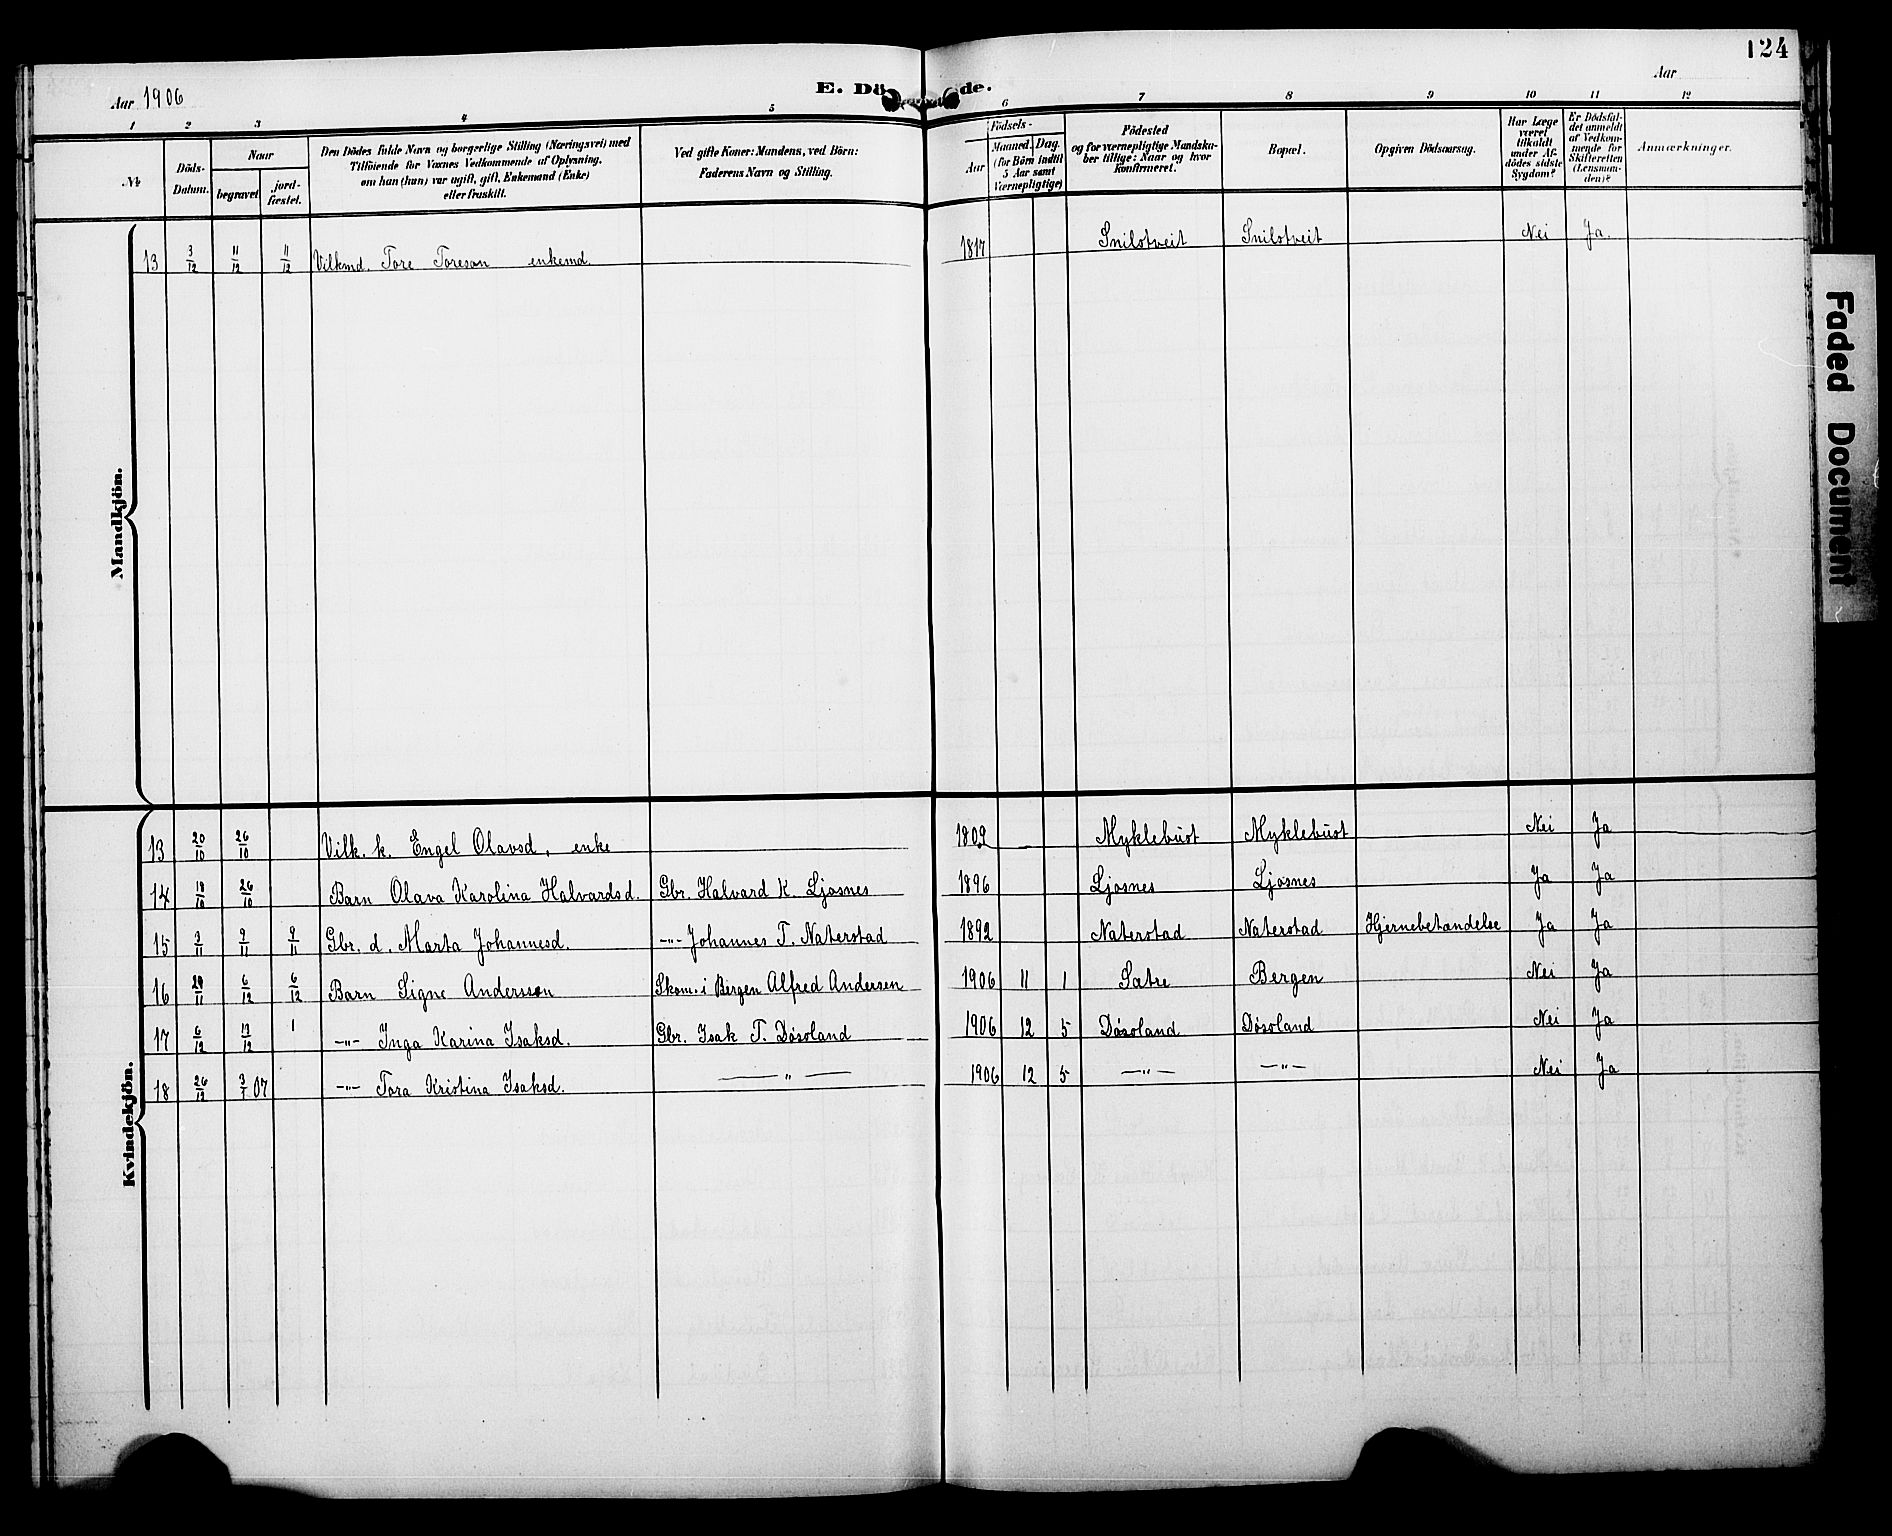 124
Aar 1906
E. Dö
de.
Aar
1 2 3 4 5 6 7 8 9 10 11 12
№
Döds-Datum.
Naar
begravet.
jord-fæstet.
Den Dödes fulde Navn og borgerlige Stilling (Næringsvei) med
Tilföiende for Voxnes Vedkommende af Oplysning,
om han (hun) var ugift, gift, Enkemand (Enke)
eller fraskilt.
Ved gifte Koner: Mandens, ved Börn:
Faderens Navn og Stilling.
Födsels-
Aar
Maaned.
Dag.
(for Börn indtil
5 Aar samt
Værnepligtige)
Födested
og for værnepligtige Mandsku-
ber tillige: Naar og hvor
Konfirmeret.
Bopæl.
Opgiven Dödsaarsag.
Har Læge
været
tilkaldt
under Af-
dödes sidste
Sygdom?
Er Dödsfal-
det anmeldt
af Vedkom-
mende for
Skifteretten
(Lensman-
den)?
Anmærkninger.
Mandkjön.
13 3/12 11/12 11/12 Vilkmd. Tore Toreson enkemd. 1817 Snilstveit Snilstveit Nei Ja.
Kvindekjön.
13 20/10 26/10 Vilk. k. Engel Olavsd, enke 1809 Myklebust Myklebust Nei Ja
14 18/10 26/10 Barn Olava Karolina Halvardsd. Gbr. Halvard K. Ljosnes 1896 Ljosnes Ljosnes Ja Ja
15 3/11 9/11 9/11 Gbr. d. Marta Johannesd. -"- Johannes T. Naterstad 1892 Naterstad Naterstad Hjernebetændelse Ja Ja
16 /11 6/12 6/12 Barn Signe Anderssen Skom. i Bergen Alfred Andersen 1906 11 1 Sætre Bergen Nei Ja
17 6/12 13/12 1 -"- Inga Karina Isaksd. Gbr. Isak T. Døsoland 1906 12 5 Døsoland Døsoland Nei Ja
18 26/12 3/1 07 -"- Tora Kristina Isaksd. -"- 1906 12 5 -"- -"- Nei Ja
Faded Document